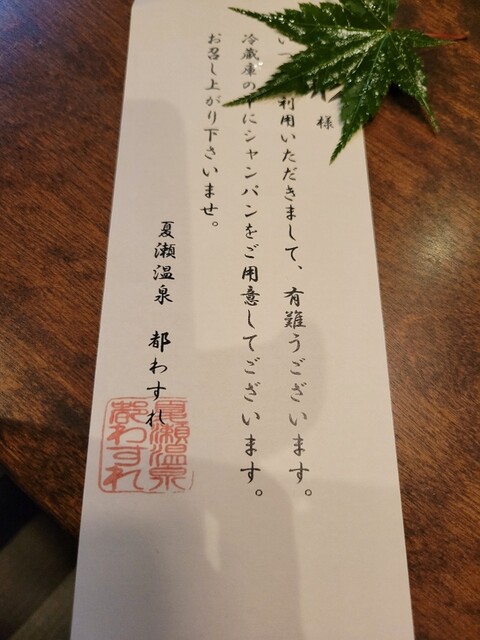 様
い 利用いただきまして、有難うございます。
冷蔵庫の中にシャンパンをご用意してございます。
お召し上がり下さいませ。
夏瀬温泉 都わすれ
夏瀬温泉
都わすれ